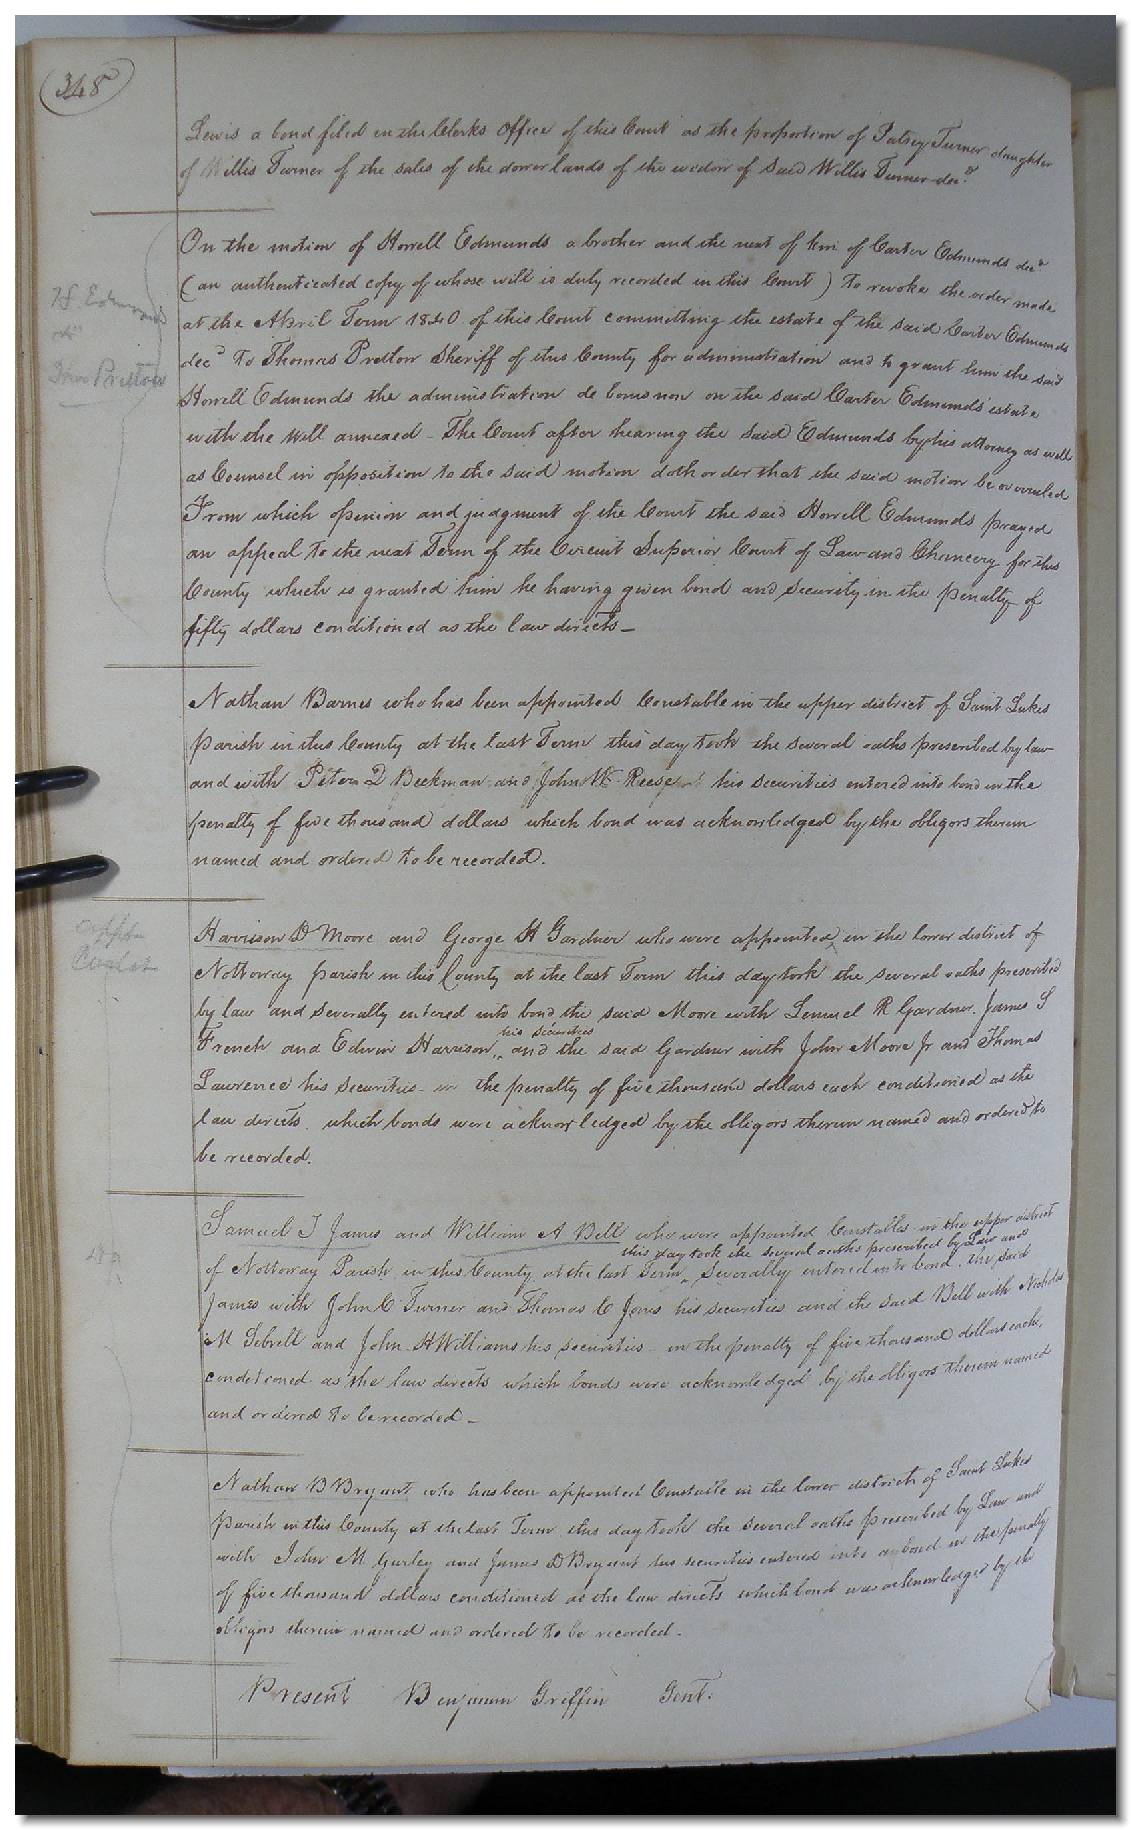 348
Lewis a bond filed in the Clerks Office of this Court as the proportion of Patsey Turner daughter
of Willis Turner of the sales of the dower lands of the widow of said Willis Turner decd
On the motion of Howell Edmunds a brother and the next of kin of Carter Edmunds decd
(an authenticated copy of whose will is duly recorded in this Court) to revoke the order made
at the April Term 1840 of this Court committing the estate of the said Carter Edmunds
decd to Thomas Pretlow Sheriff of this County for administration and to grant him the said
Howell Edmunds the administration de bonis non on the said Carter Edmunds' estate
with the Will annexed - The Court after hearing the said Edmunds by his attorney as well
as Counsel in opposition to the said motion doth order that the said motion be overruled
From which opinion and judgment of the Court the said Howell Edmunds prayed
an appeal to the next Term of the Circuit Superior Court of Law and Chancery for this
County which is granted him he having given bond and security in the penalty of
fifty dollars conditioned as the law directs -
H Edmunds
Pretlow
Nathan Barnes who has been appointed Constable in the upper district of Saint Lukes
parish in this County at the last Term this day took the several oaths prescribed by law
and with Peter D Beekman and John W. Reese his securities entered into bond in the
penalty of five thousand dollars which bond was acknowledged by the obligors therein
named and ordered to be recorded.
Harrison D Moore and George H Gardner who were appointed in the lower district of
Nottoway parish in this County at the last Term this day took the several oaths prescribed
by law and severally entered into bond the said Moore with Lemuel R Gardner, James S
his securities
French and Edwin Harrison, and the said Gardner with John Moore Jr and Thomas
Lawrence his securities in the penalty of five thousand dollars each conditioned as the
law directs which bonds were acknowledged by the obligors therein named and ordered to
be recorded.
Samuel T James and William A Bell who were appointed Constables in the upper district
this day took the several oaths prescribed by Law and
of Nottoway Parish in this County at the last Term severally entered into bond, the said
James with John C Turner and Thomas C Jones his securities and the said Bell with Nicholas
M Sebrell and John H Williams his securities in the penalty of five thousand dollars each,
conditioned as the law directs which bonds were acknowledged by the obligors therein named
and ordered to be recorded -
Nathan B Bryant who has been appointed Constable in the lower district of Saint Lukes
parish in this County at the last Term this day took the several oaths prescribed by Law and
with John M Gurley and James D Bryant his securities entered into a bond in the penalty
of five thousand dollars conditioned as the law directs which bond was acknowledged by the
obligors therein named and ordered to be recorded.
Present Benjamin Griffin Gent.